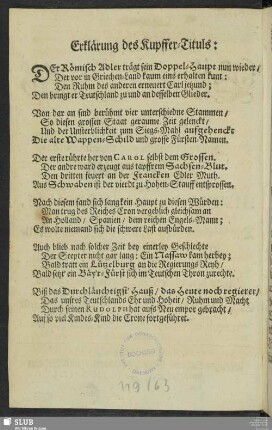 Erklärung des Kupffer-Tituls:
DEr Römisch Adler trägt sein Doppel-Haupt nun wieder /
Der vor in Griechen-Land kaum eins erhalten kunt:
Den Ruhm des anderen erneuert Carl jetzund;
Den bringt er Teutschland zu und an desselben Glieder.
Von dar an sind berühmt vier unterschiedne Stammen /
So diesen grossen Staat geraume Zeit gelenckt /
Und der Unsterblichkeit zum Siegs-Mahl aufgehenckt
Die alte Wappen-Schild und grosse Fürsten-Namen.
Der erste rührt her von CAROL selbst dem Grossen.
Der andre ward erzeugt aus tapffrem Sachsen-Blut.
Den dritten feuert an der Francken Edler Muth.
Aus Schwaben ist der vierdt zu Hohen-Stauff entsprossen.
Nach diesem fand sich lang kein Haupt zu diesen Würden:
Man trug des Reiches Cron vergeblich gleichsam an
An Holland / Spanien / dem reichen Engels-Mann;
Es wolte niemand sich die schwere Last aufbürden.
Auch blieb nach solcher Zeit bey einerley Geschlechte
Der Scepter nicht gar lang: Ein Nassaw kam herbey;
Bald tratt ein Lützelburg an die Regierungs Reyh /
Bald setzt ein Bäyr-Fürst sich im Teutschen Thron zu rechte.
Biß das Durchläuchtigst' Hauß / das Heute noch regieret /
Das unsres Teutschlands Ehr und Hoheit / Ruhm und Macht
Durch seinen RUDOLPH hat aufs Neu empor gebracht /
Auf so viel Kindes-Kind die Crone fortgeführet.
119/63
SLUB